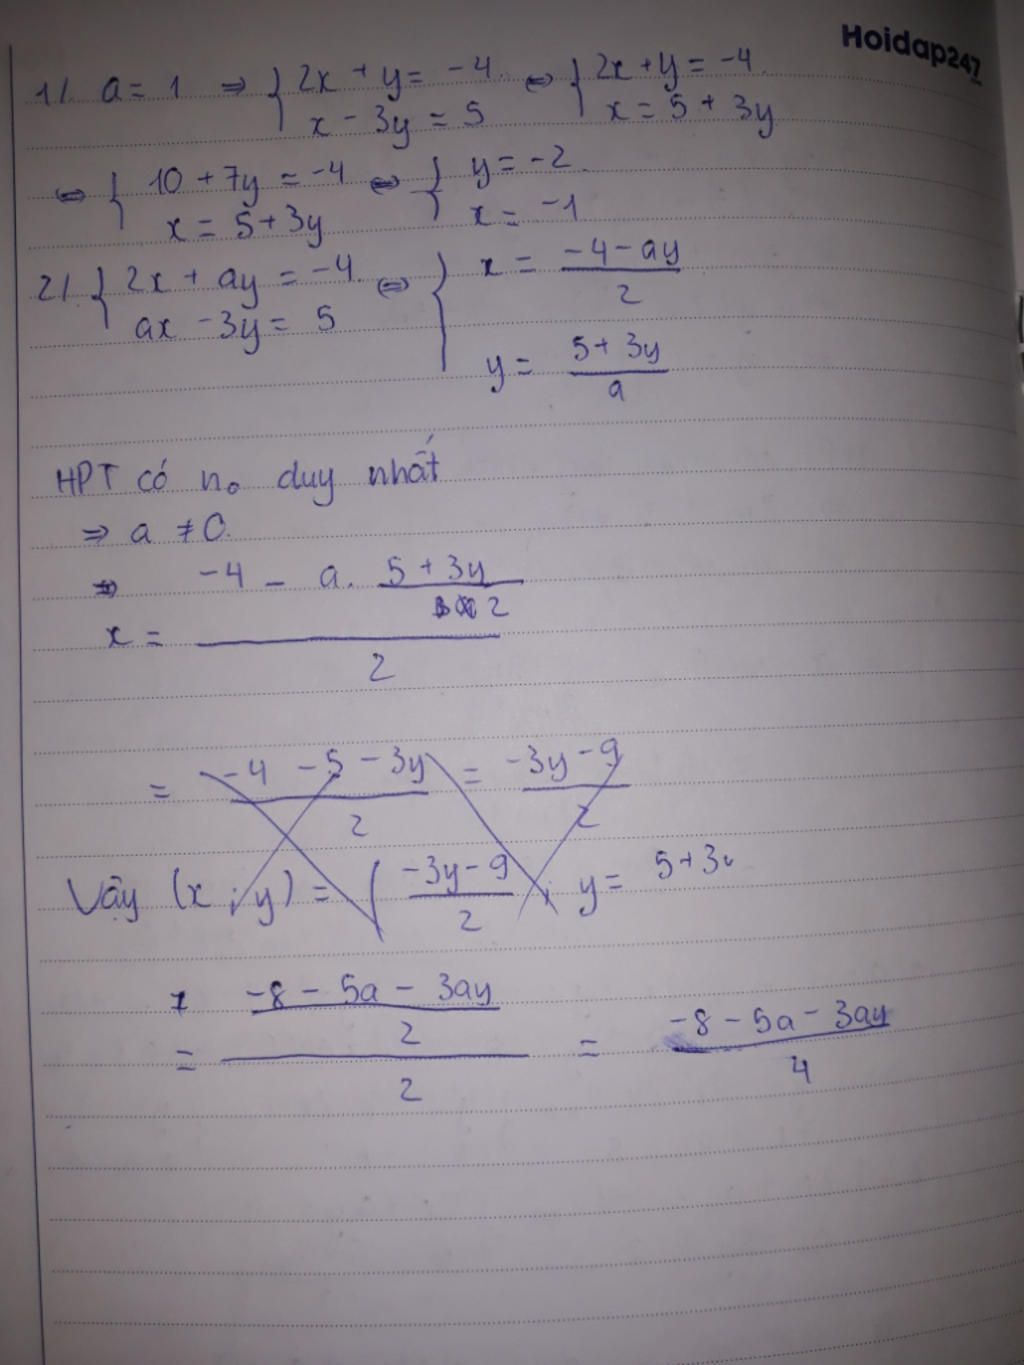 Hoidap247
1/. a = 1 ⇒ { 2x + y = -4 ⇔ { 2x + y = -4
x - 3y = 5 x = 5 + 3y
⇔ { 10 + 7y = -4 ⇔ { y = -2
x = 5 + 3y x = -1
2/. { 2x + ay = -4 ⇔ { x = -4 - ay / 2
ax - 3y = 5 y = 5 + 3y / a
HPT có no duy nhất
⇒ a ≠ 0.
-4 - a. 5 + 3y / 2
x =
2
= -4 - 5 - 3y / 2 = -3y - 9 / 2
Vậy (x ; y) = ( -3y - 9 / 2 ; y = 5 + 3y
x -8 - 5a - 3ay / 2
= / 2 = -8 - 5a - 3ay / 4